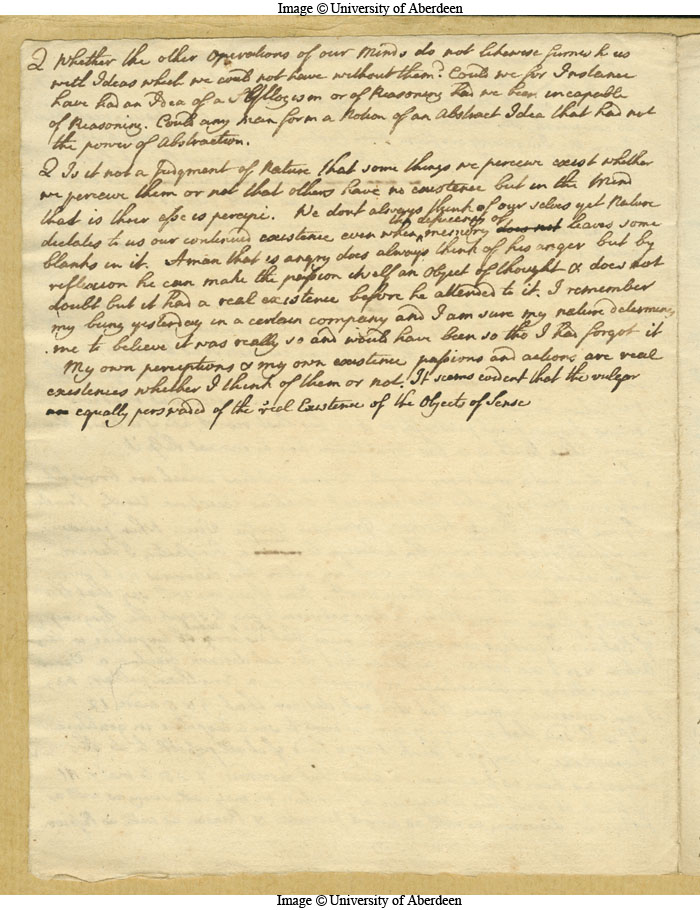 Image © University of Aberdeen
Q Whether the other Operations of our Minds do not likewise furnish us
with Ideas which we could not have without them? Could we for Instance
have had an Idea of a Syllogism or of Reasoning had we been incapable
of Reasoning. Could any man form a Notion of an Abstract Idea that had not
the power of Abstraction.
Q Is it not a Judgment of Nature that some things we perceive exist whether
we perceive them or not that others have no existence but in the Mind
that is their esse is percipi. We dont always think of our selves yet Nature
the deficiency of
dictates to us our continued existence even when memory does not leaves some
blanks in it. A man that is angry does always think of his anger but by
reflexion he can make the passion itself an Object of thought & does not
doubt but it had a real existence before he attended to it. I remember
my being yesterday in a certain company and I am sure my nature determines
me to believe it was really so and would have been so tho I had forgot it
My own perceptions & my own existence passions and actions are real
existences whether I think of them or not. It seems evident that the vulgar
equally perswaded of the real Existence of the Objects of Sense
Image © University of Aberdeen